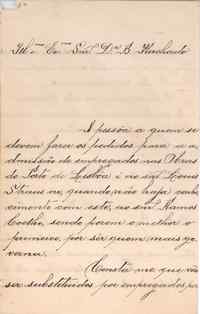 Ill.mo Ex.mo Snr. Dr. B. Machado
A pessôa a quem se
devem fazer os pedidos para a a
dmissão de empregados nas Obras
do Porto de Lisboa é ao snr. Louis
Strauss ou, quando não haja conhe
cimento com este, ao snr. Ramos
Coelho, sendo porem o melhor o
primeiro, por sêr quem mais go
verna.
Consta-me que vão
ser substituidos por empregados por